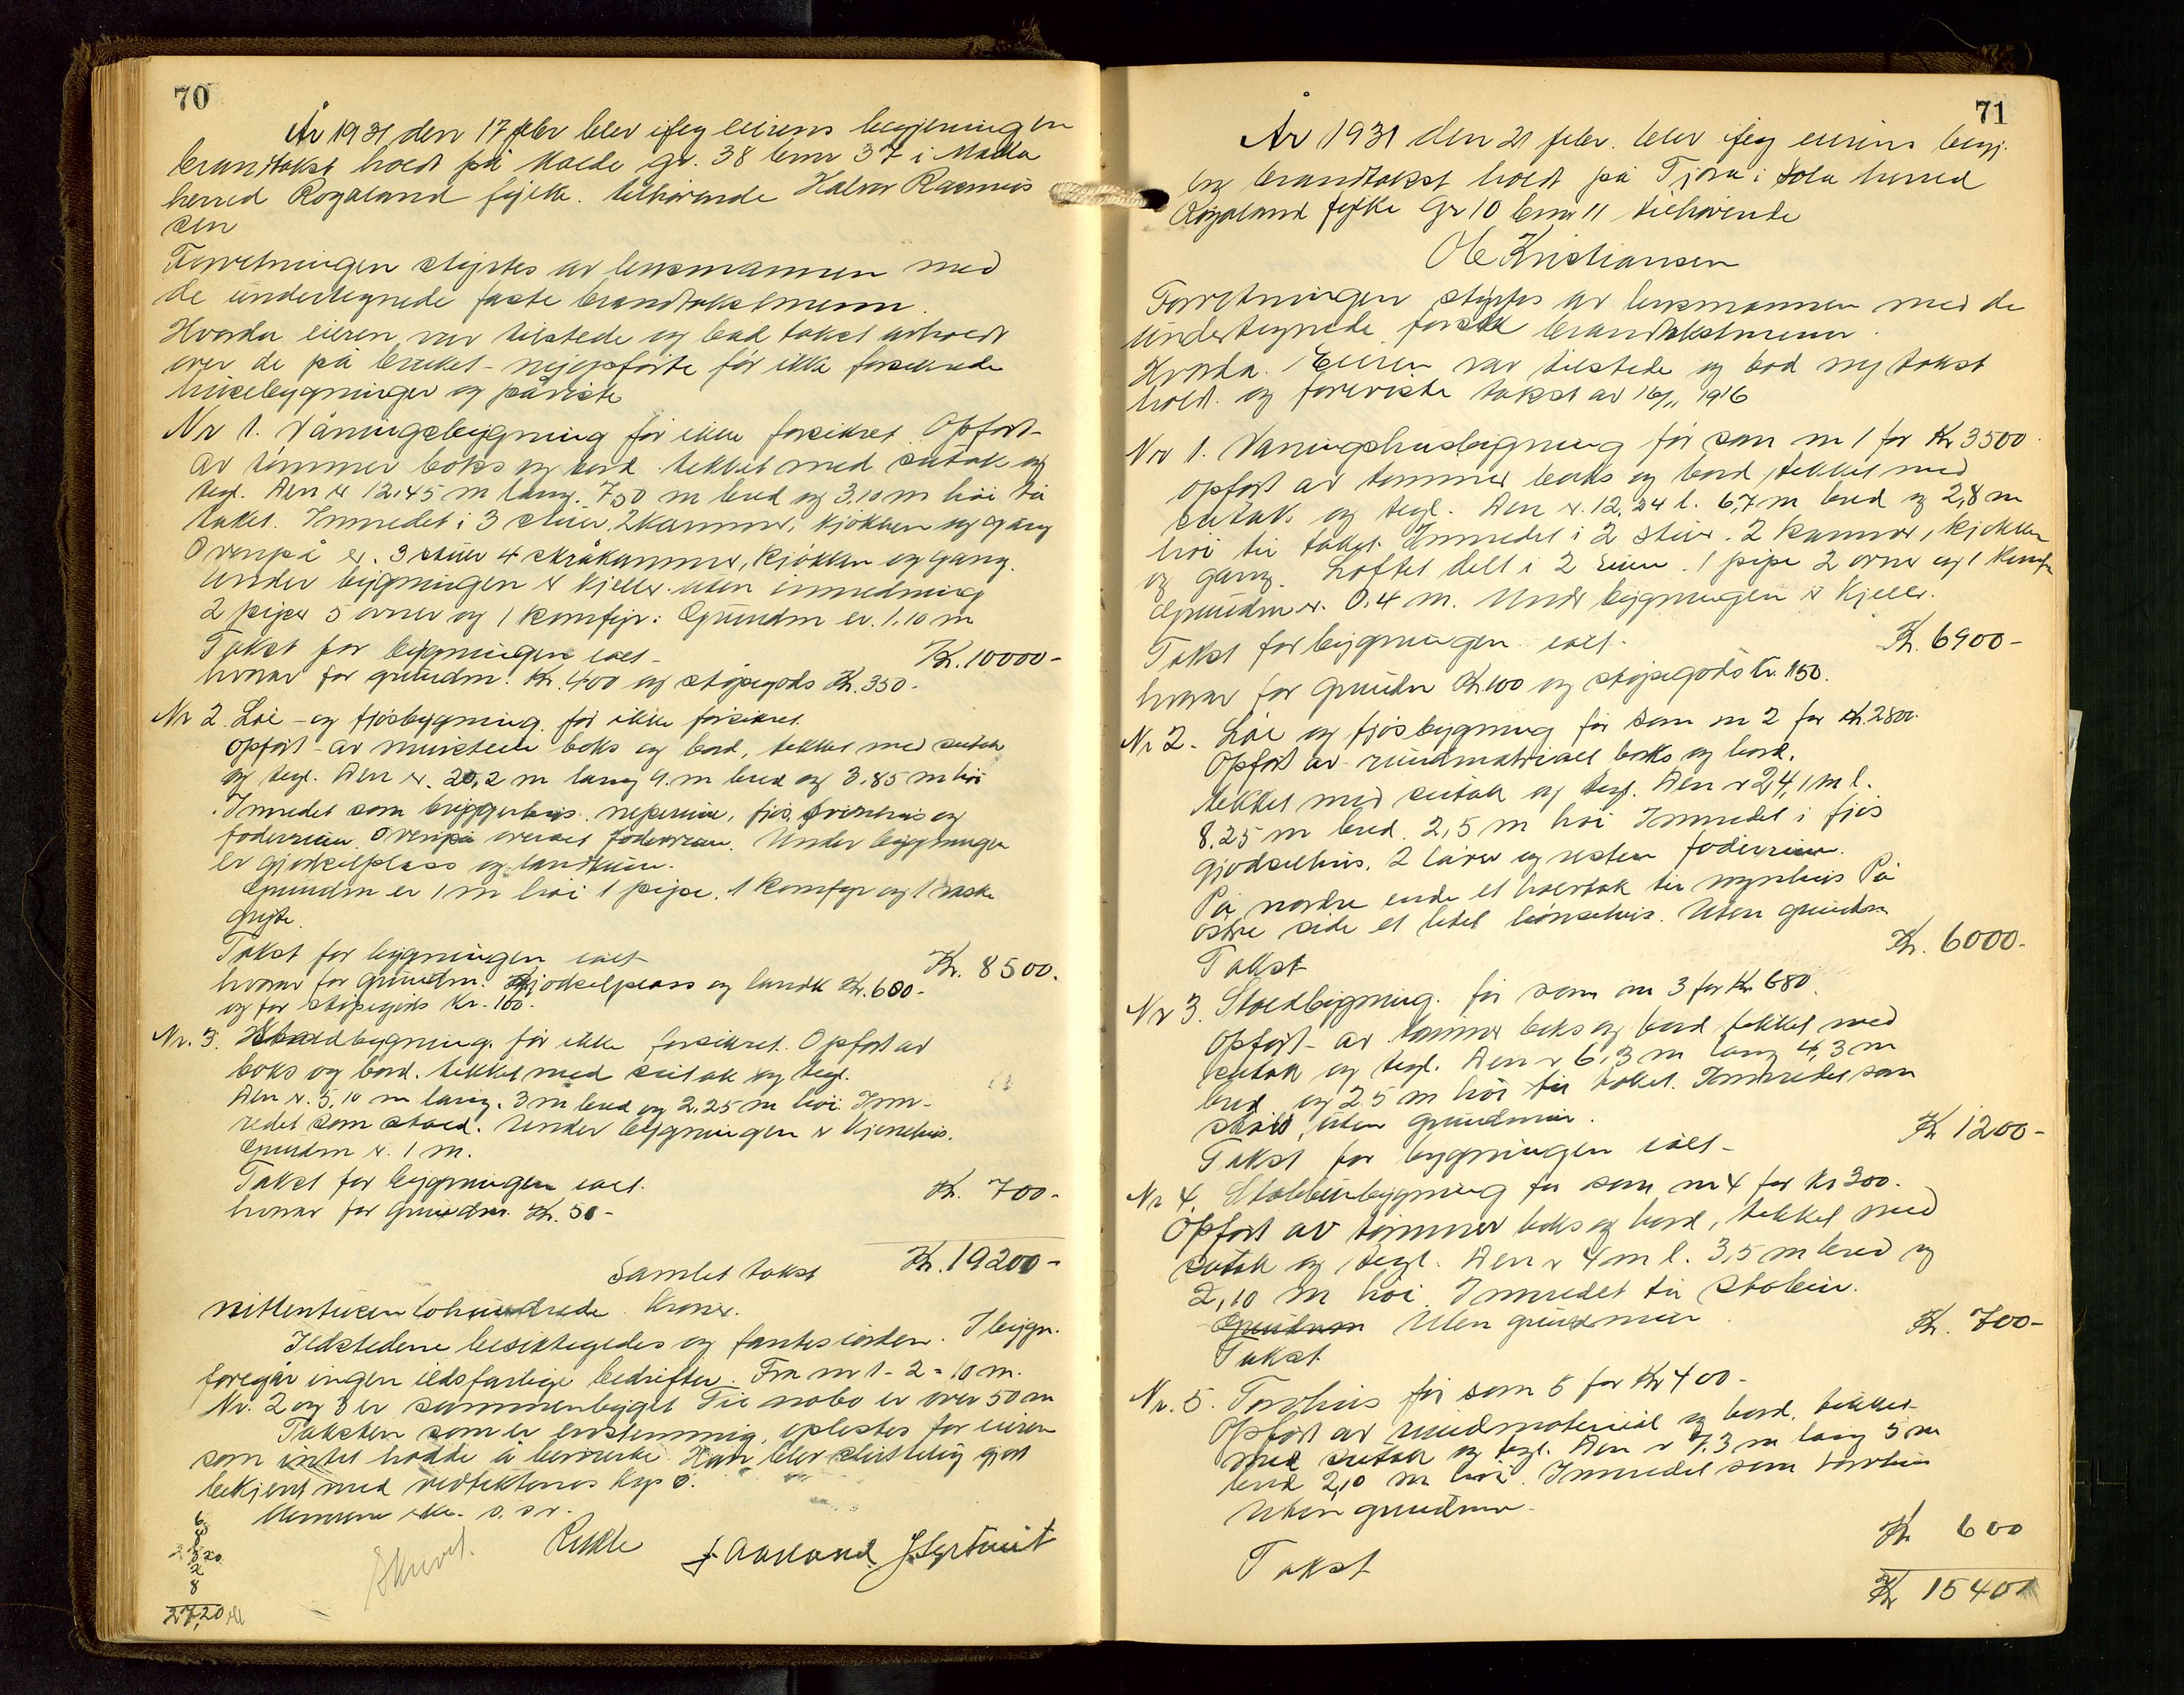 70
År 1931 den 17 febr blev efter eierens begjæring en
brandtakst holdt på Molde gr. 38 bnr 37 i Madla
herred Rogaland fylke. tilhørende Halvor Rasmus
sen
Forretningen styrtes av lensmannen med
de undertegnede faste brandtakstmenn.
Hvorda eieren var tilstede og bad takst avholdt
over de på bruket - nyopførte før ikke forsikrede
husebygninger og påviste
Nr 1. Våningsbygning før ikke forsikret. Opført-
av tømmer boks og bord. tekket med sutak og
tegl. Den er 12,45 m lang. 7,50 m bred og 3,10 m høi til
taket. Innredet i 3 stuer, 2 kammer, kjøkken og gang
Ovenpå er. 3 stuer 4 skråkammer, kjøkken og gang.
Under bygningen er kjeller uten innredning
2 piper 5 ovner og 1 komfyr: Grundm er. 1.10 m
Takst for bygningen ialt - Kr. 10000-
hvorav for grundm. Kr. 400 og støpegods Kr. 350-
Nr 2. Løe - og fjøsbygning. før ikke forsikret.
Opført - av mursteen boks og bord, tekket med sutak
og tegl. Den er. 20,2 m lang 9. m bred og 3.85 m høi
Innredet som bryggerhus. neperum, fjøs, svinehus og
foderrum. Ovenpå overalt foderrum. Under bygningen
er gjødselplass og landkum.
Grundm er 1 m høi 1 pipe. 1 komfyr og 1 vaske
gryte.
Takst for bygningen ialt Kr. 8500.
hvorav for grundm. gjødselplass og landk Kr. 600-
og for støpegods Kr. 100-
Nr. 3. Staldbygning. før ikke forsikret. Opført av
boks og bord. tekket med sutak og tegl.
Den er. 5,10 m lang. 3 m bred og 2,25 m høi. Inn-
redet som stald. Under bygningen er hjemhus.
Grundm er. 1 m.
Takst for bygningen ialt. Kr. 700-
hvorav for grundm. Kr. 50-
Samlet takst Kr. 19200-
nittentusentohundrede kroner.
Ildstedene besiktegedes og fantes iorden. I bygn.
foregår ingen ildsfarlige bedrifter. Fra nr 1 - 2 = 10 m.
Nr. 2 og 3 er sammenbygget Til nabo er over 50 m
Taksten som er enstemmig, oplestes for eieren
som intet hadde å bemerke. Han blev skriftelig gjort
bekjent med vedtektenes kap 5.
6
8
3,20
2
8
27,20
J Aasland

71
År 1931 den 21 febr. blev efter eierens begj.
en brandtakst holdt på Tjora i Sola herred
Rogaland fylke Gr 10 bnr 11 tilhørende
Ole Kristiansen
Forretningen styrtes av lensmannen med de
undertegnede faste brandtakstmenn.
Hvorda. Eieren var tilstede og bad ny takst
holdt. og foreviste takst av 16/11 1916
Nr 1. Vaningshusbygning før som nr 1 for Kr 3500
Opført av tømmer boks og bord, tekket med
sutak og tegl. Den er. 12,24 l. 6,7 m bred og 2,8 m
høi til taket. Innredet i 2 stuer. 2 kammer, kjøkken
og gang. Loftet delt i 2 rum. 1 pipe 2 ovner og 1 komfyr
Grundm er. 0,4 m. Under bygningen er kjeller.
Takst for bygningen ialt - Kr. 6900-
hvorav for grundm Kr. 100 og støpegods kr. 150.
Nr 2. Løe og fjøsbygning før som nr 2 for Kr. 2800.
Opført av rundmatriall boks og bord.
tekket med sutak og tegl. Den er 24,1 m l.
8,25 m bred. 2,5 m høi Innredet i fjøs
gjødselhus, 2 låver og resten foderrum.
På nordre ende et halvtak til mynhus På
østre side et litet hønsehus. Uten grundm
Takst Kr. 6000.
Nr 3. Staldbygning. før som nr 3 for Kr 680.
Opført - av tømmer boks og bord, tekket med
sutak og tegl. Den er 6,3 m lang 4,3 m
bred og 2.5 m høi til taket. Innredet som
stald, uten grundmur.
Takst for bygningen ialt - Kr 1200-
Nr 4. Stabbursbygning før som nr 4 for Kr 300-
Opført av tømmer boks og bord, tekket med
sutak og tegl. Den er 4 m l. 3,5 m bred og
2,10 m høi. Innredet til stabur.
Grundmm Uten grundmur
Takst Kr. 700-
Nr. 5. Torvhus før som 5 for Kr 400-
Opført av rundmateriial og bord. tekket
med sutak og tegl. Den er 7.3 m lang 5 m
bred 2,10 m høi. Innredet som torvhus
Uten grundmur.
Takst Kr 600
Kr 15400